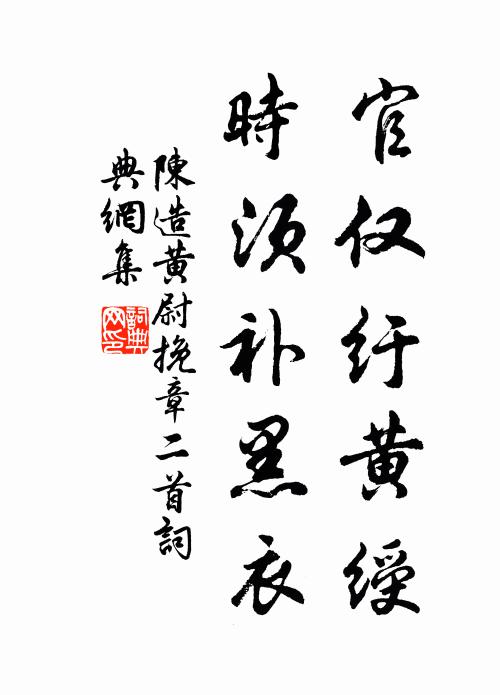 官仅纡黄绶
時须补黑衣
陳造黄尉挽章二首詞
典網集
詞典网印